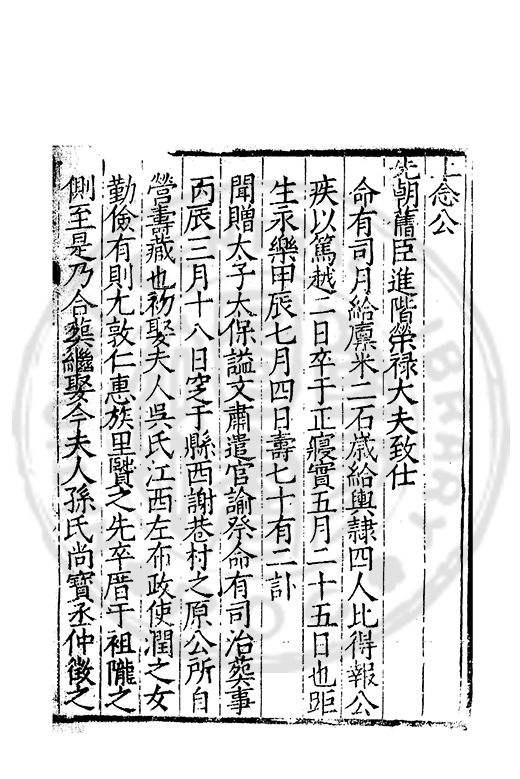 上念公
先朝舊臣進階榮禄大夫致仕
命有司月給廪米二石歳給輿隷四人比得報公
疾以篤越二日卒于正寢實五月二十五日也距
生永樂甲辰七月四日壽七十有二訃
聞贈太子太保謚文肅遣官諭祭命有司治葬事
丙辰三月十八日窆于縣西謝巷村之原公所自
營壽藏也初娶夫人吳氏江西左布政使潤之女
勤儉有則尤敦仁惠族里賢之先卒厝于祖隴之
側至是乃合葬繼娶今夫人孫氏尚寶丞仲徵之